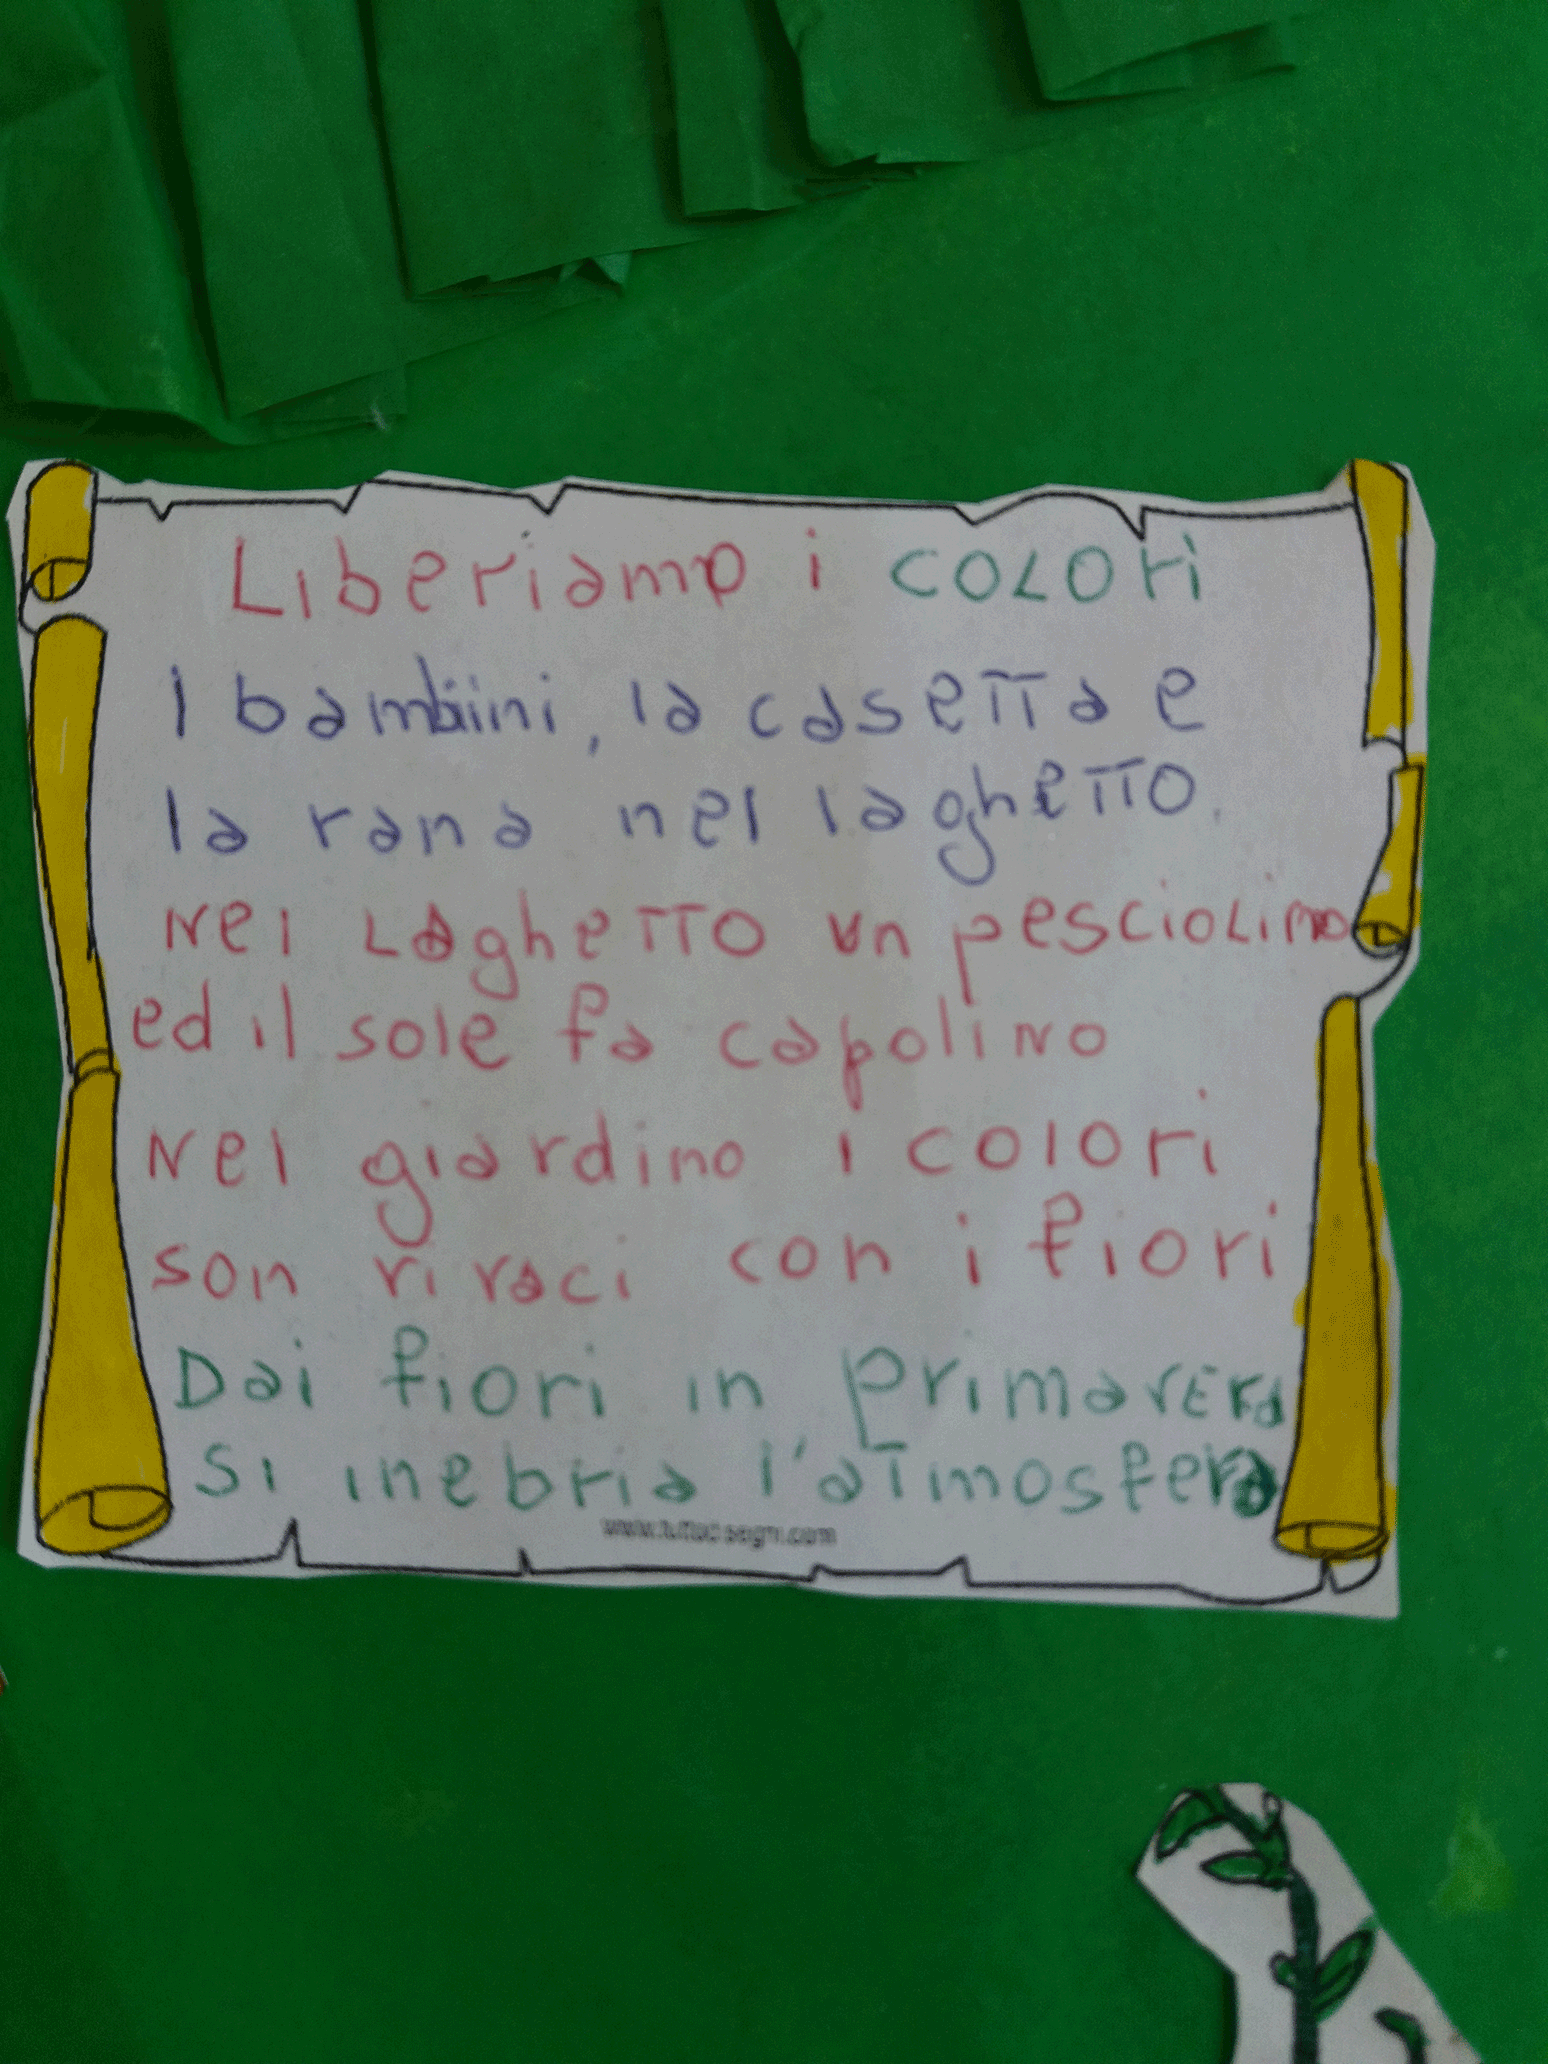 Liberiamo i COLORi
I bambini, la casetta e
la rana nel laghetto.
Nel LaghetTO un pescioLino
ed il sole fa capolino
Nel giardino i colori
son vivaci con i fiori
Dai fiori in primavera
si inebria l'atmosfera
www.tuttodisegni.com